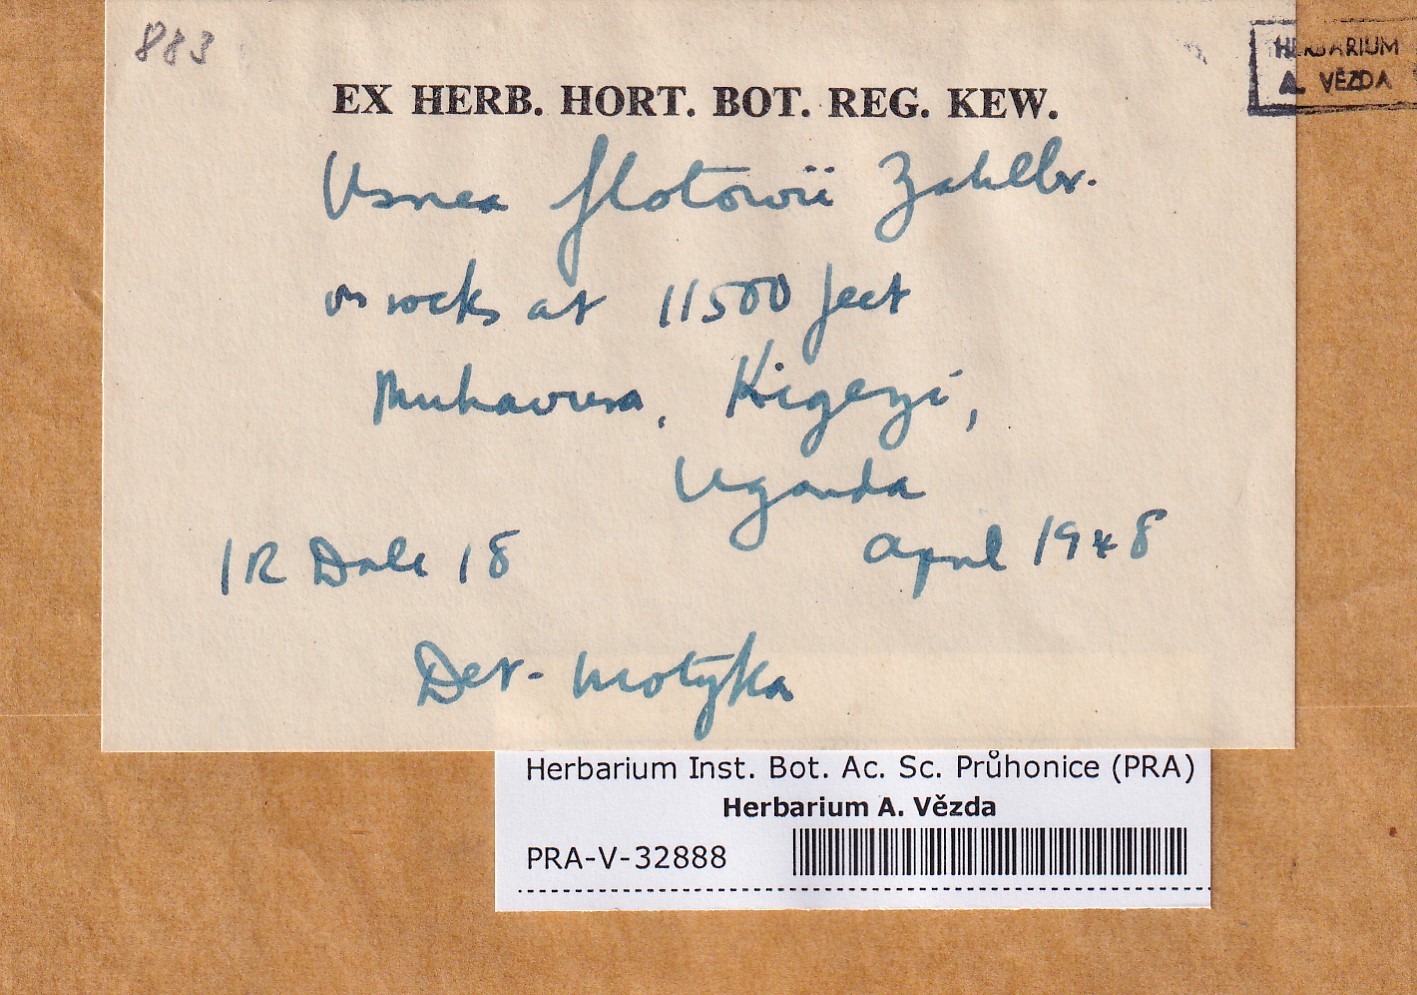 883
HERBARIUM
A. VĚZDA
EX HERB. HORT. BOT. REG. KEW.
Usnea flotowii Zahlbr.
on rocks at 11500 feet
Muhavura, Kigezi,
Uganda
IR Dale 18 April 1948
Det. Motyka
Herbarium Inst. Bot. Ac. Sc. Průhonice (PRA)
Herbarium A. Vězda
PRA-V-32888